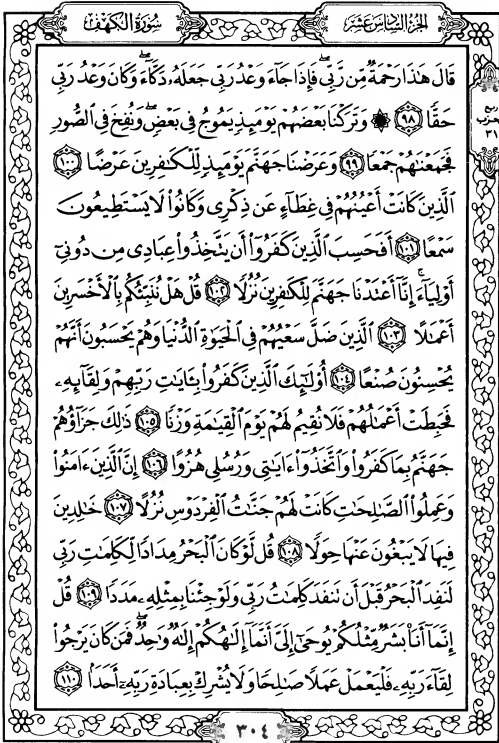 الجزء السادس عشر
سورة الكهف
قَالَ هَٰذَا رَحْمَةٌ مِّن رَّبِّي فَإِذَا جَآءَ وَعْدُ رَبِّي جَعَلَهُۥ دَكَّآءَ وَكَانَ وَعْدُ رَبِّي
حَقًّا ٩٨ ۞ وَتَرَكْنَا بَعْضَهُمْ يَوْمَئِذٍ يَمُوجُ فِي بَعْضٍ وَنُفِخَ فِي ٱلصُّورِ
فَجَمَعْنَٰهُمْ جَمْعًا ٩٩ وَعَرَضْنَا جَهَنَّمَ يَوْمَئِذٍ لِّلْكَٰفِرِينَ عَرْضًا ١٠٠
ٱلَّذِينَ كَانَتْ أَعْيُنُهُمْ فِي غِطَآءٍ عَن ذِكْرِي وَكَانُوا۟ لَا يَسْتَطِيعُونَ
سَمْعًا ١٠١ أَفَحَسِبَ ٱلَّذِينَ كَفَرُوٓا۟ أَن يَتَّخِذُوا۟ عِبَادِي مِن دُونِيٓ
أَوْلِيَآءَ إِنَّآ أَعْتَدْنَا جَهَنَّمَ لِلْكَٰفِرِينَ نُزُلًا ١٠٢ قُلْ هَلْ نُنَبِّئُكُم بِٱلْأَخْسَرِينَ
أَعْمَٰلًا ١٠٣ ٱلَّذِينَ ضَلَّ سَعْيُهُمْ فِي ٱلْحَيَوٰةِ ٱلدُّنْيَا وَهُمْ يَحْسَبُونَ أَنَّهُمْ
يُحْسِنُونَ صُنْعًا ١٠٤ أُو۟لَٰٓئِكَ ٱلَّذِينَ كَفَرُوا۟ بِـَٔايَٰتِ رَبِّهِمْ وَلِقَآئِهِۦ
فَحَبِطَتْ أَعْمَٰلُهُمْ فَلَا نُقِيمُ لَهُمْ يَوْمَ ٱلْقِيَٰمَةِ وَزْنًا ١٠٥ ذَٰلِكَ جَزَآؤُهُمْ
جَهَنَّمُ بِمَا كَفَرُوا۟ وَٱتَّخَذُوٓا۟ ءَايَٰتِي وَرُسُلِي هُزُوًا ١٠٦ إِنَّ ٱلَّذِينَ ءَامَنُوا۟
وَعَمِلُوا۟ ٱلصَّٰلِحَٰتِ كَانَتْ لَهُمْ جَنَّٰتُ ٱلْفِرْدَوْسِ نُزُلًا ١٠٧ خَٰلِدِينَ
فِيهَا لَا يَبْغُونَ عَنْهَا حِوَلًا ١٠٨ قُل لَّوْ كَانَ ٱلْبَحْرُ مِدَادًا لِّكَلِمَٰتِ رَبِّي
لَنَفِدَ ٱلْبَحْرُ قَبْلَ أَن تَنفَدَ كَلِمَٰتُ رَبِّي وَلَوْ جِئْنَا بِمِثْلِهِۦ مَدَدًا ١٠٩ قُلْ
إِنَّمَآ أَنَا۠ بَشَرٌ مِّثْلُكُمْ يُوحَىٰٓ إِلَيَّ أَنَّمَآ إِلَٰهُكُمْ إِلَٰهٌ وَٰحِدٌ فَمَن كَانَ يَرْجُوا۟
لِقَآءَ رَبِّهِۦ فَلْيَعْمَلْ عَمَلًا صَٰلِحًا وَلَا يُشْرِكْ بِعِبَادَةِ رَبِّهِۦٓ أَحَدًۢا ١١٠
ربع
الحزب
٣١
٣٠٤